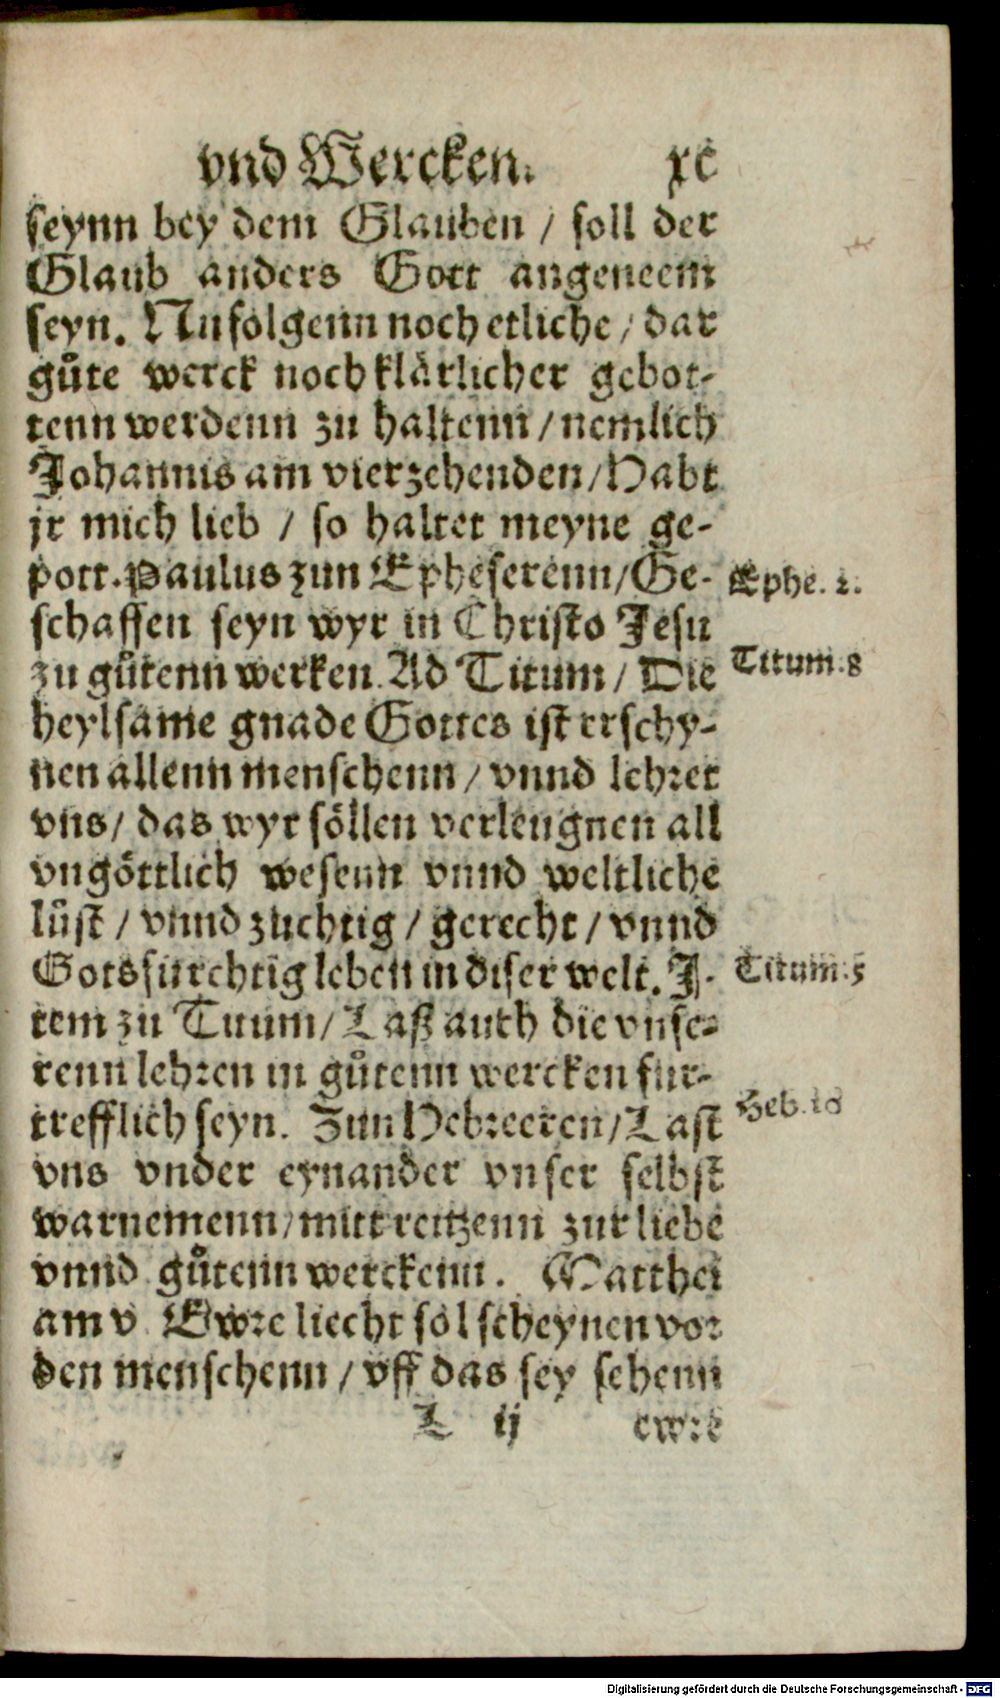 vnd Wercken. xc
seynn bey dem Glauben / soll der
Glaub anders Gott angeneem
seyn. Nu folgenn noch etliche / dar
gůte werck noch klårlicher gebot-
tenn werdenn zu haltenn / nemlich
Johannis am vierzehenden / Habt
jr mich lieb / so haltet meyne ge-
pott. Paulus zun Epheserenn / Ge-
Ephe. 2.
schaffen seyn wyr in Christo Jesu
zu gůtenn werken. Ad Titum / Die
Titum. 8
heylsame gnade Gottes ist erschy-
nen allenn menschenn / vnnd lehret
vns / das wyr söllen verleugnen all
vngöttlich wesenn vnnd weltliche
lůst / vnnd zuchtig / gerecht / vnnd
Gotsfurchtig leben in diser welt. J-
Titum. 5
tem zu Titum / Laß auch die vnse-
renn lehren in gůtenn wercken fur-
trefflich seyn. Zun Hebreeren / Last
Heb. 18
vns vnder eynander vnser selbst
warnemenn / mitt reitzenn zur liebe
vnnd gůtenn werckenn. Matthei
am v. Ewre liecht sol scheynen vor
den menschenn / vff das sey sehenn
L ij ewre
Digitalisierung gefördert durch die Deutsche Forschungsgemeinschaft - DFG